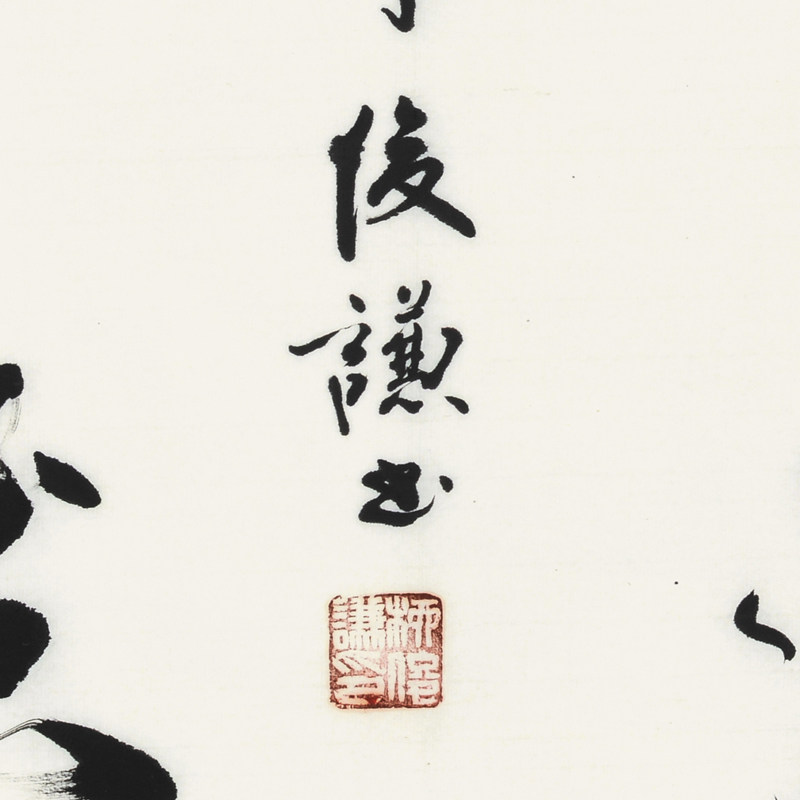 俊謙书
柳俊
謙印